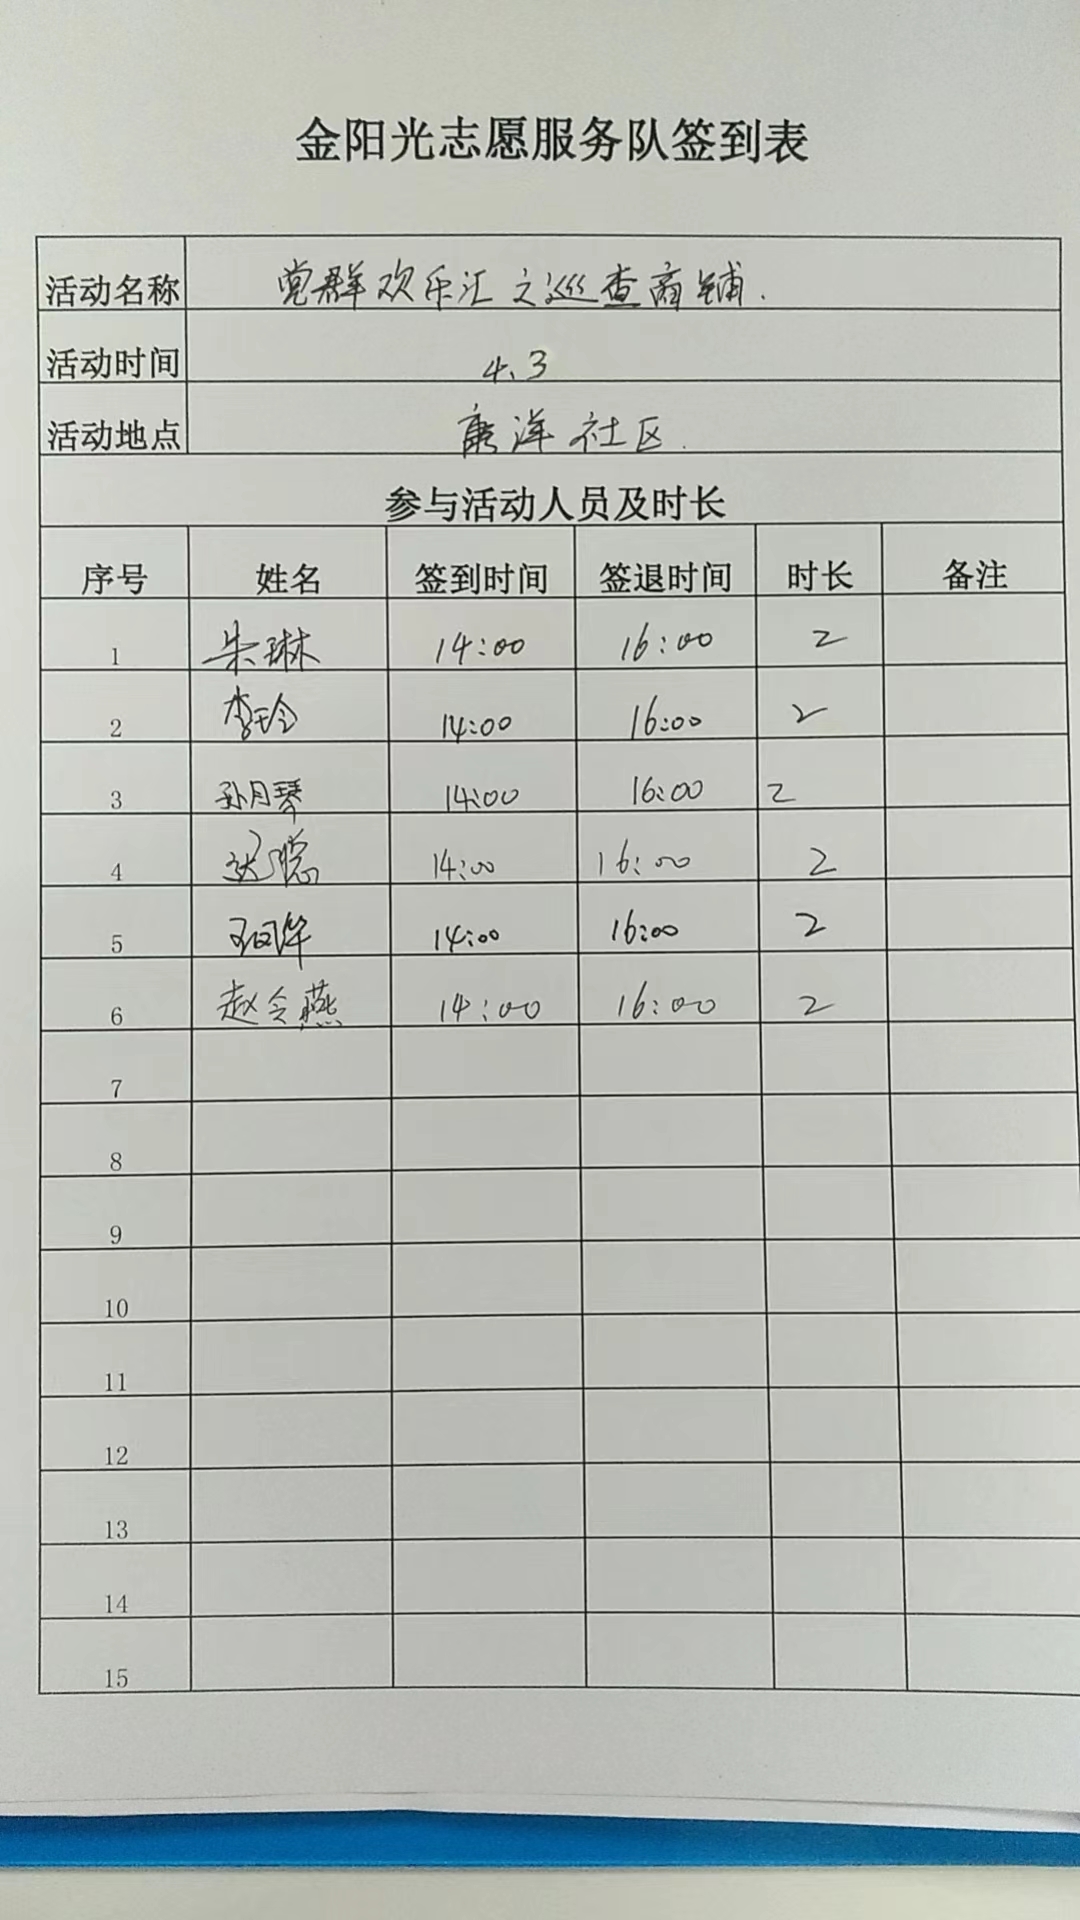 金阳光志愿服务队签到表
活动名称 党群欢乐汇之巡查商铺.
活动时间 4.3
活动地点 唐洋社区.
参与活动人员及时长
序号 姓名 签到时间 签退时间 时长 备注
1 朱琳 14:00 16:00 2
2 李玲 14:00 16:00 2
3 孙月琴 14:00 16:00 2
4 14:00 16:00 2
5 14:00 16:00 2
6 赵会燕 14:00 16:00 2
7
8
9
10
11
12
13
14
15